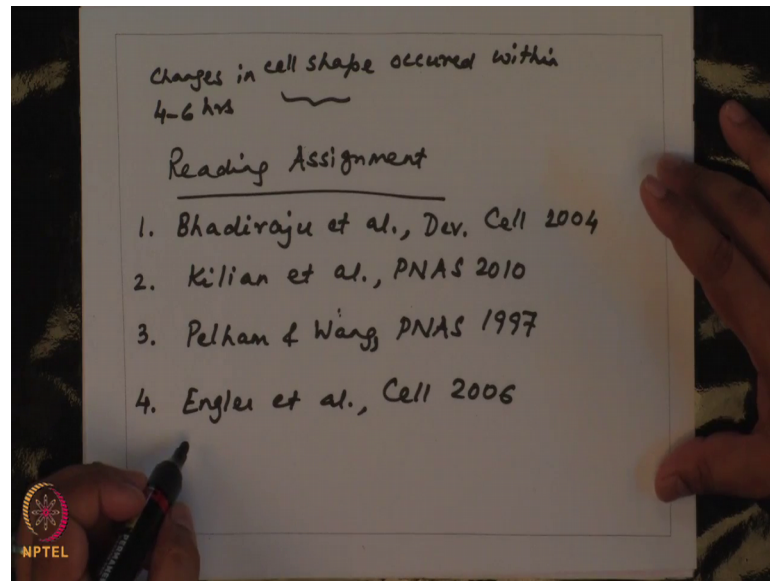 Changes in cell shape occured within
4-6 hrs
Reading Assignment
1. Bhadiraju et al., Dev. Cell 2004
2. Kilian et al., PNAS 2010
3. Pelham & Wang, PNAS 1997
4. Engler et al., Cell 2006
NPTEL
PERMANENT